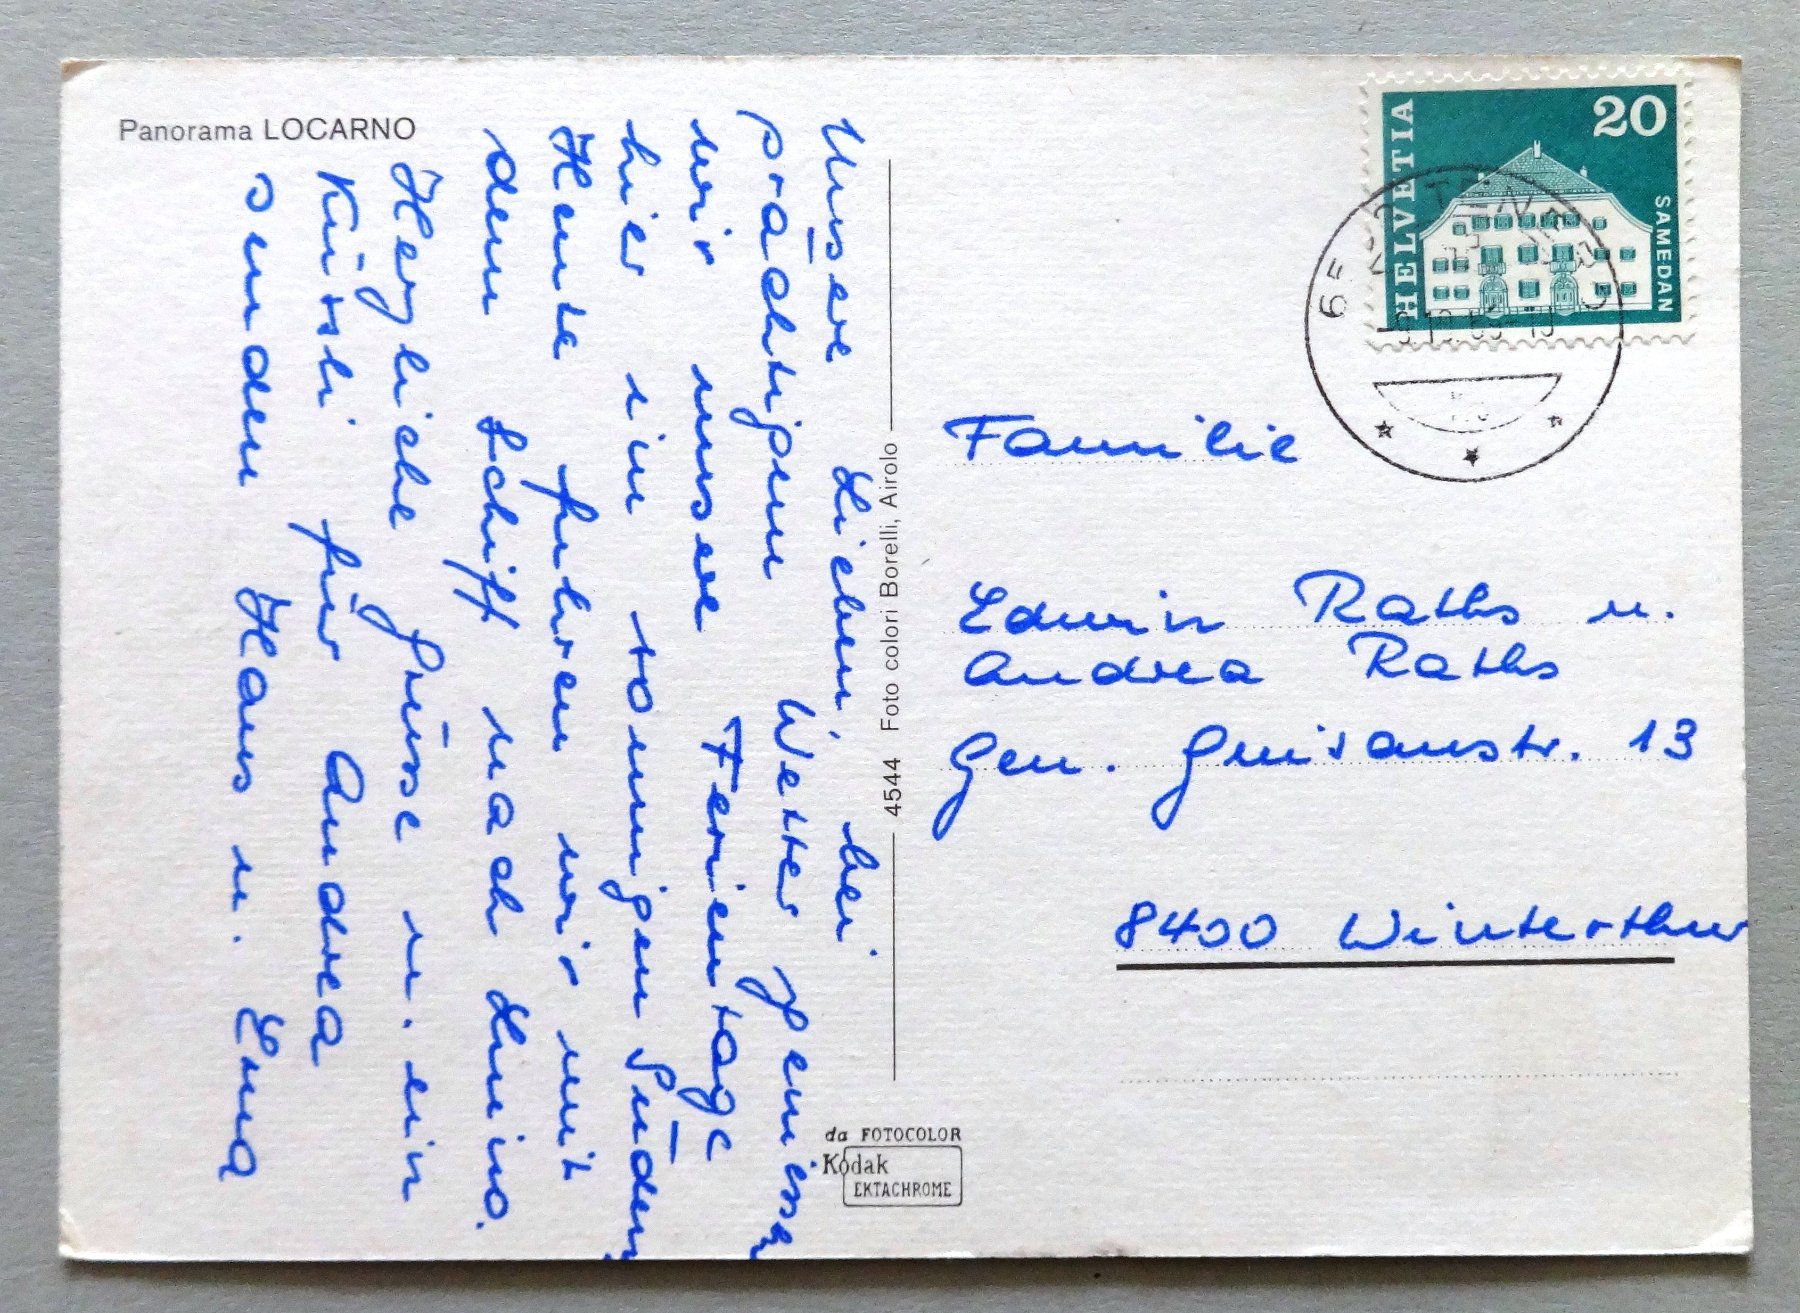 Panorama LOCARNO
Unsere Lieben, bei
prächtigem Wetter geniessen
wir unsere Ferientage
hier im sonnigen Süden.
Heute fuhren wir mit
dem Schiff nach Luino.
Herzliche Grüsse u. ein
für Andrea
senden Hans u. Erna
4544 Foto colori Borelli, Airolo
da FOTOCOLOR
Kodak
EKTACHROME
HELVETIA
20
SAMEDAN
Familie
Edwin Raths u.
Andrea Raths
Gen. Guisanstr. 13
8400 Winterthur